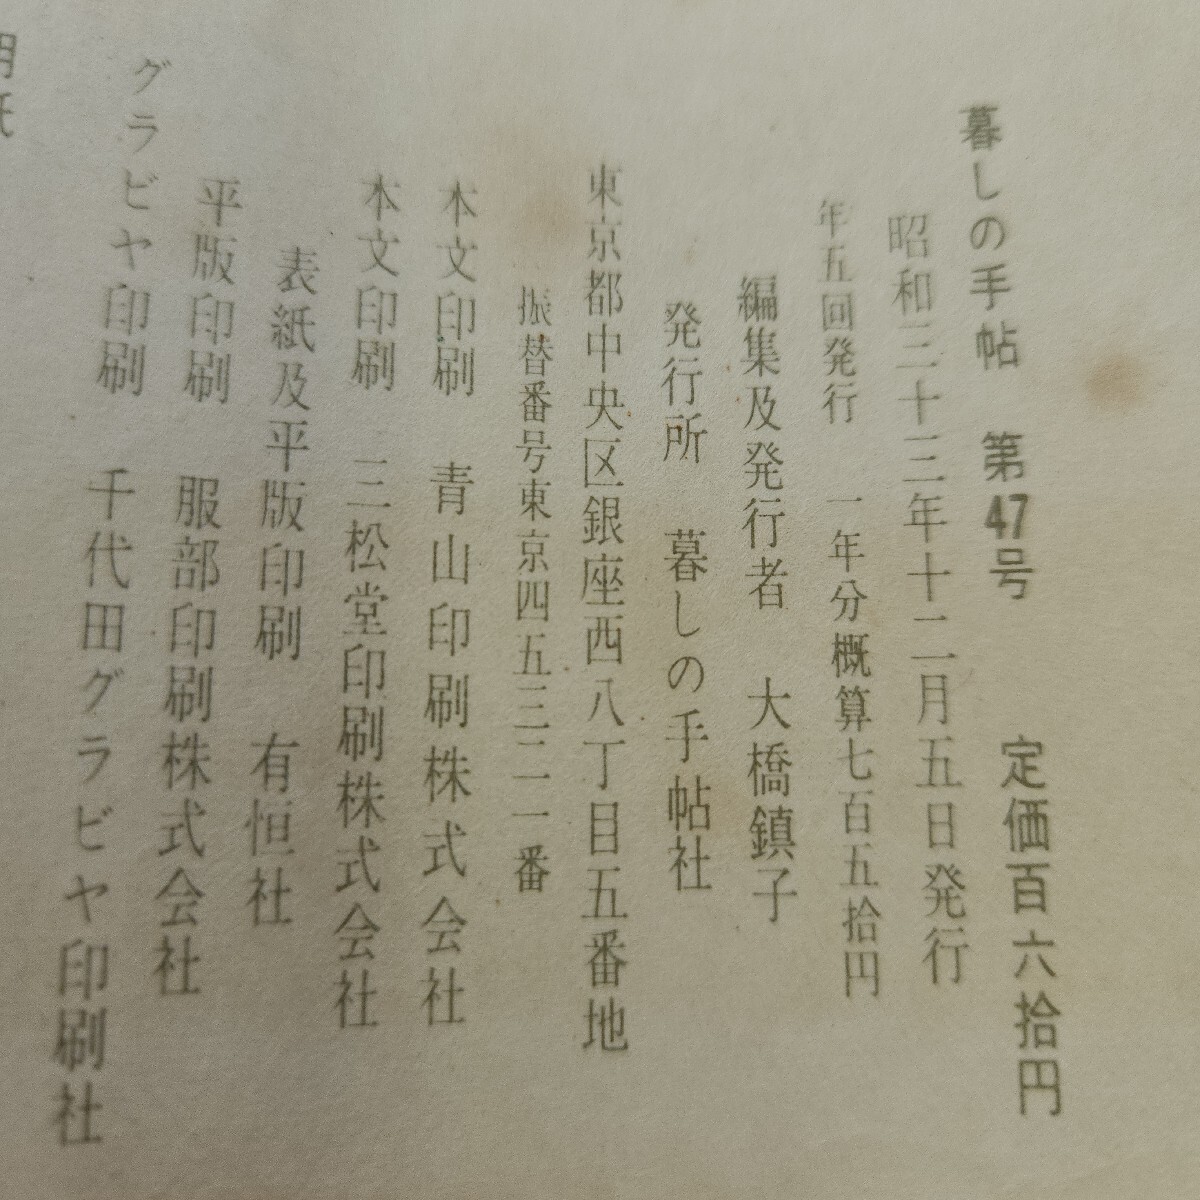 暮しの手帖 第47号 定価百六拾円
昭和三十三年十二月五日発行
年五回発行 一年分概算七百五拾円
編集及発行者 大橋鎮子
発行所 暮しの手帖社
東京都中央区銀座西八丁目五番地
振替番号東京四五三二一番
本文印刷 青山印刷株式会社
本文印刷 三松堂印刷株式会社
表紙及平版印刷 有恒社
平版印刷 服部印刷株式会社
グラビヤ印刷 千代田グラビヤ印刷社
用紙